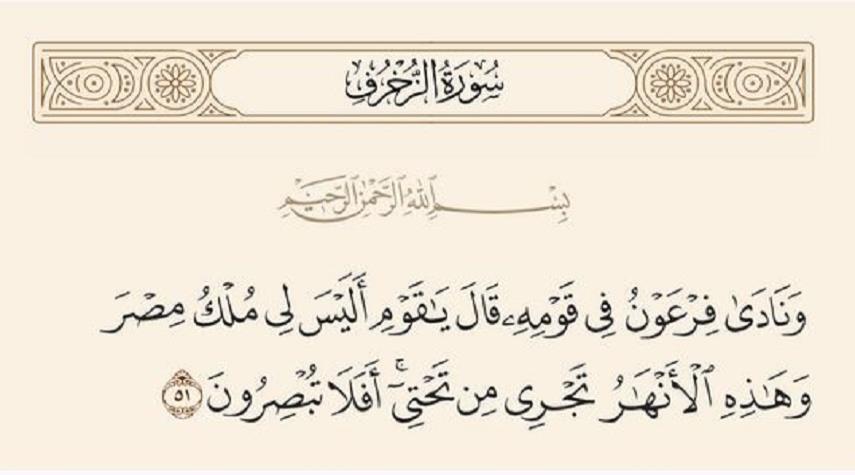 سُورَةُ الزُّخْرُفِ
بِسْمِ اللَّهِ الرَّحْمَٰنِ الرَّحِيمِ
وَنَادَىٰ فِرْعَوْنُ فِى قَوْمِهِۦ قَالَ يَٰقَوْمِ أَلَيْسَ لِى مُلْكُ مِصْرَ
وَهَٰذِهِ ٱلْأَنْهَٰرُ تَجْرِى مِن تَحْتِىٓ ۚ أَفَلَا تُبْصِرُونَ ٥١